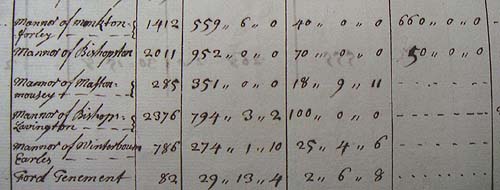 Mannor of monkton- 1412 559 „ 6 „ 0 40 „ 0 „ 0 660 „ 0 „ 0
forley
Mannor of Bishopston 2011 952 „ 0 „ 0 70 „ 0 „ 0 50 „ 0 „ 0
Mannor of Maston- 285 351 „ 0 „ 0 18 „ 9 „ 11
mousey
Mannor of Bishop- 2376 794 „ 3 „ 2 100 „ 0 „ 0
Lavington
Mannor of Winterbourn 786 274 „ 1 „ 10 25 „ 4 „ 6
Earles
Ford Tenement 82 29 „ 13 „ 4 2 „ 6 „ 8